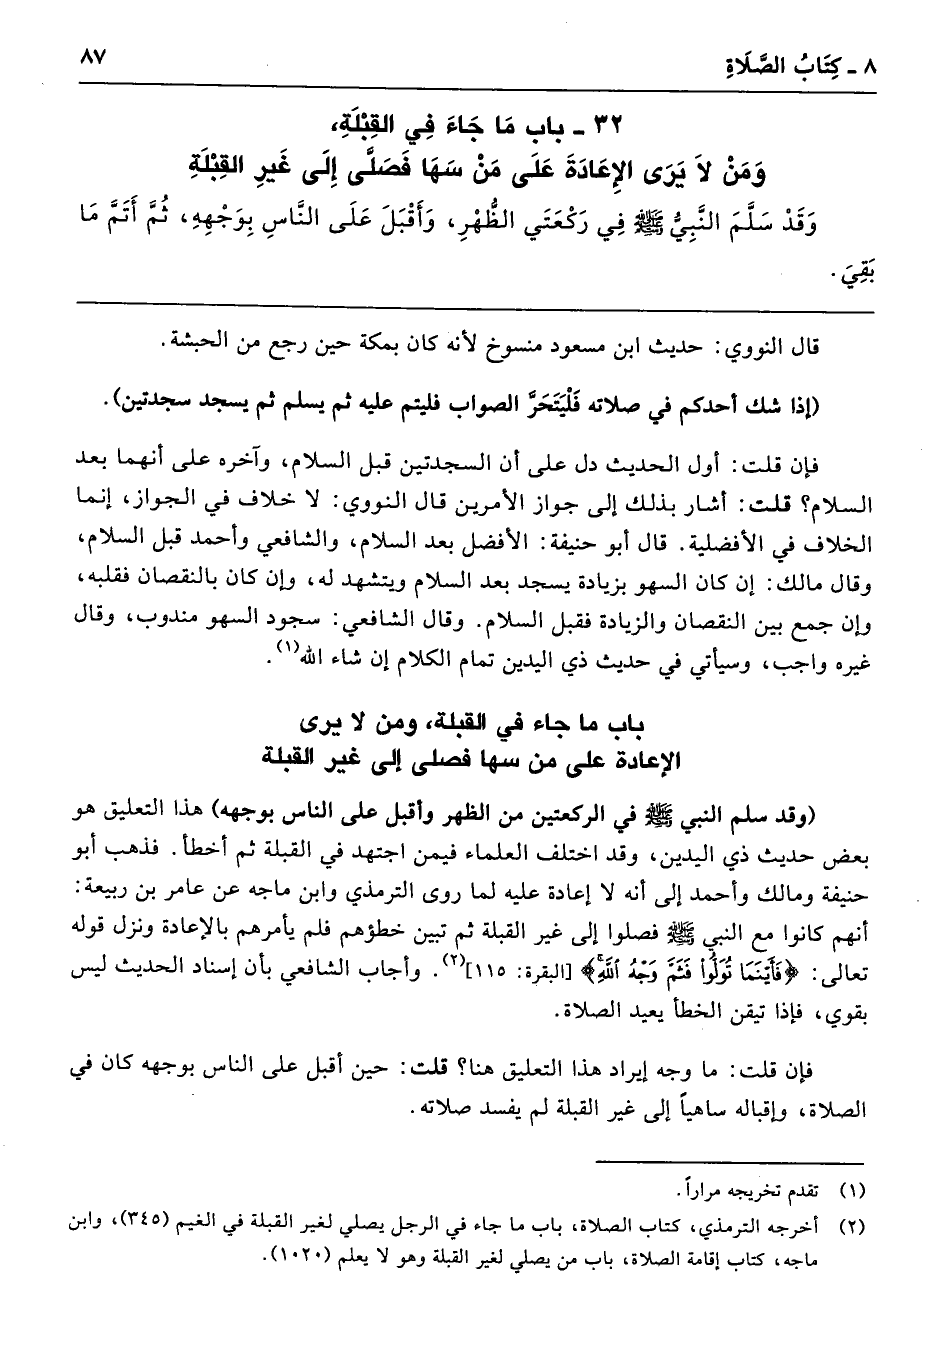 ٨ ـ كِتَابُ الصَّلَاةِ
٨٧
٣٢ ـ باب مَا جَاءَ فِي القِبْلَةِ،
وَمَنْ لاَ يَرَى الإِعَادَةَ عَلَى مَنْ سَهَا فَصَلَّى إِلَى غَيرِ القِبْلَةِ
وَقَدْ سَلَّمَ النَّبِيُّ ﷺ فِي رَكْعَتَيِ الظُّهْرِ، وَأَقْبَلَ عَلَى النَّاسِ بِوَجْهِهِ، ثُمَّ أَتَمَّ مَا
بَقِيَ.
قال النووي: حديث ابن مسعود منسوخ لأنه كان بمكة حين رجع من الحبشة.
(إذا شك أحدكم في صلاته فَلْيَتَحَرَّ الصواب فليتم عليه ثم يسلم ثم يسجد سجدتين).
فإن قلت: أول الحديث دل على أن السجدتين قبل السلام، وآخره على أنهما بعد
السلام؟ قلت: أشار بذلك إلى جواز الأمرين قال النووي: لا خلاف في الجواز، إنما
الخلاف في الأفضلية. قال أبو حنيفة: الأفضل بعد السلام، والشافعي وأحمد قبل السلام،
وقال مالك: إن كان السهو بزيادة يسجد بعد السلام ويتشهد له، وإن كان بالنقصان فقلبه،
وإن جمع بين النقصان والزيادة فقبل السلام. وقال الشافعي: سجود السهو مندوب، وقال
غيره واجب، وسيأتي في حديث ذي اليدين تمام الكلام إن شاء الله(١).
باب ما جاء في القبلة، ومن لا يرى
الإعادة على من سها فصلى إلى غير القبلة
(وقد سلم النبي ﷺ في الركعتين من الظهر وأقبل على الناس بوجهه) هذا التعليق هو
بعض حديث ذي اليدين، وقد اختلف العلماء فيمن اجتهد في القبلة ثم أخطأ. فذهب أبو
حنيفة ومالك وأحمد إلى أنه لا إعادة عليه لما روى الترمذي وابن ماجه عن عامر بن ربيعة:
أنهم كانوا مع النبي ﷺ فصلوا إلى غير القبلة ثم تبين خطؤهم فلم يأمرهم بالإعادة ونزل قوله
تعالى: ﴿فَأَيْنَمَا تُوَلُّوا فَثَمَّ وَجْهُ ٱللَّهِ﴾ [البقرة: ١١٥](٢). وأجاب الشافعي بأن إسناد الحديث ليس
بقوي، فإذا تيقن الخطأ يعيد الصلاة.
فإن قلت: ما وجه إيراد هذا التعليق هنا؟ قلت: حين أقبل على الناس بوجهه كان في
الصلاة، وإقباله ساهياً إلى غير القبلة لم يفسد صلاته.
(١) تقدم تخريجه مراراً.
(٢) أخرجه الترمذي، كتاب الصلاة، باب ما جاء في الرجل يصلي لغير القبلة في الغيم (٣٤٥)، وابن
ماجه، كتاب إقامة الصلاة، باب من يصلي لغير القبلة وهو لا يعلم (١٠٢٠).